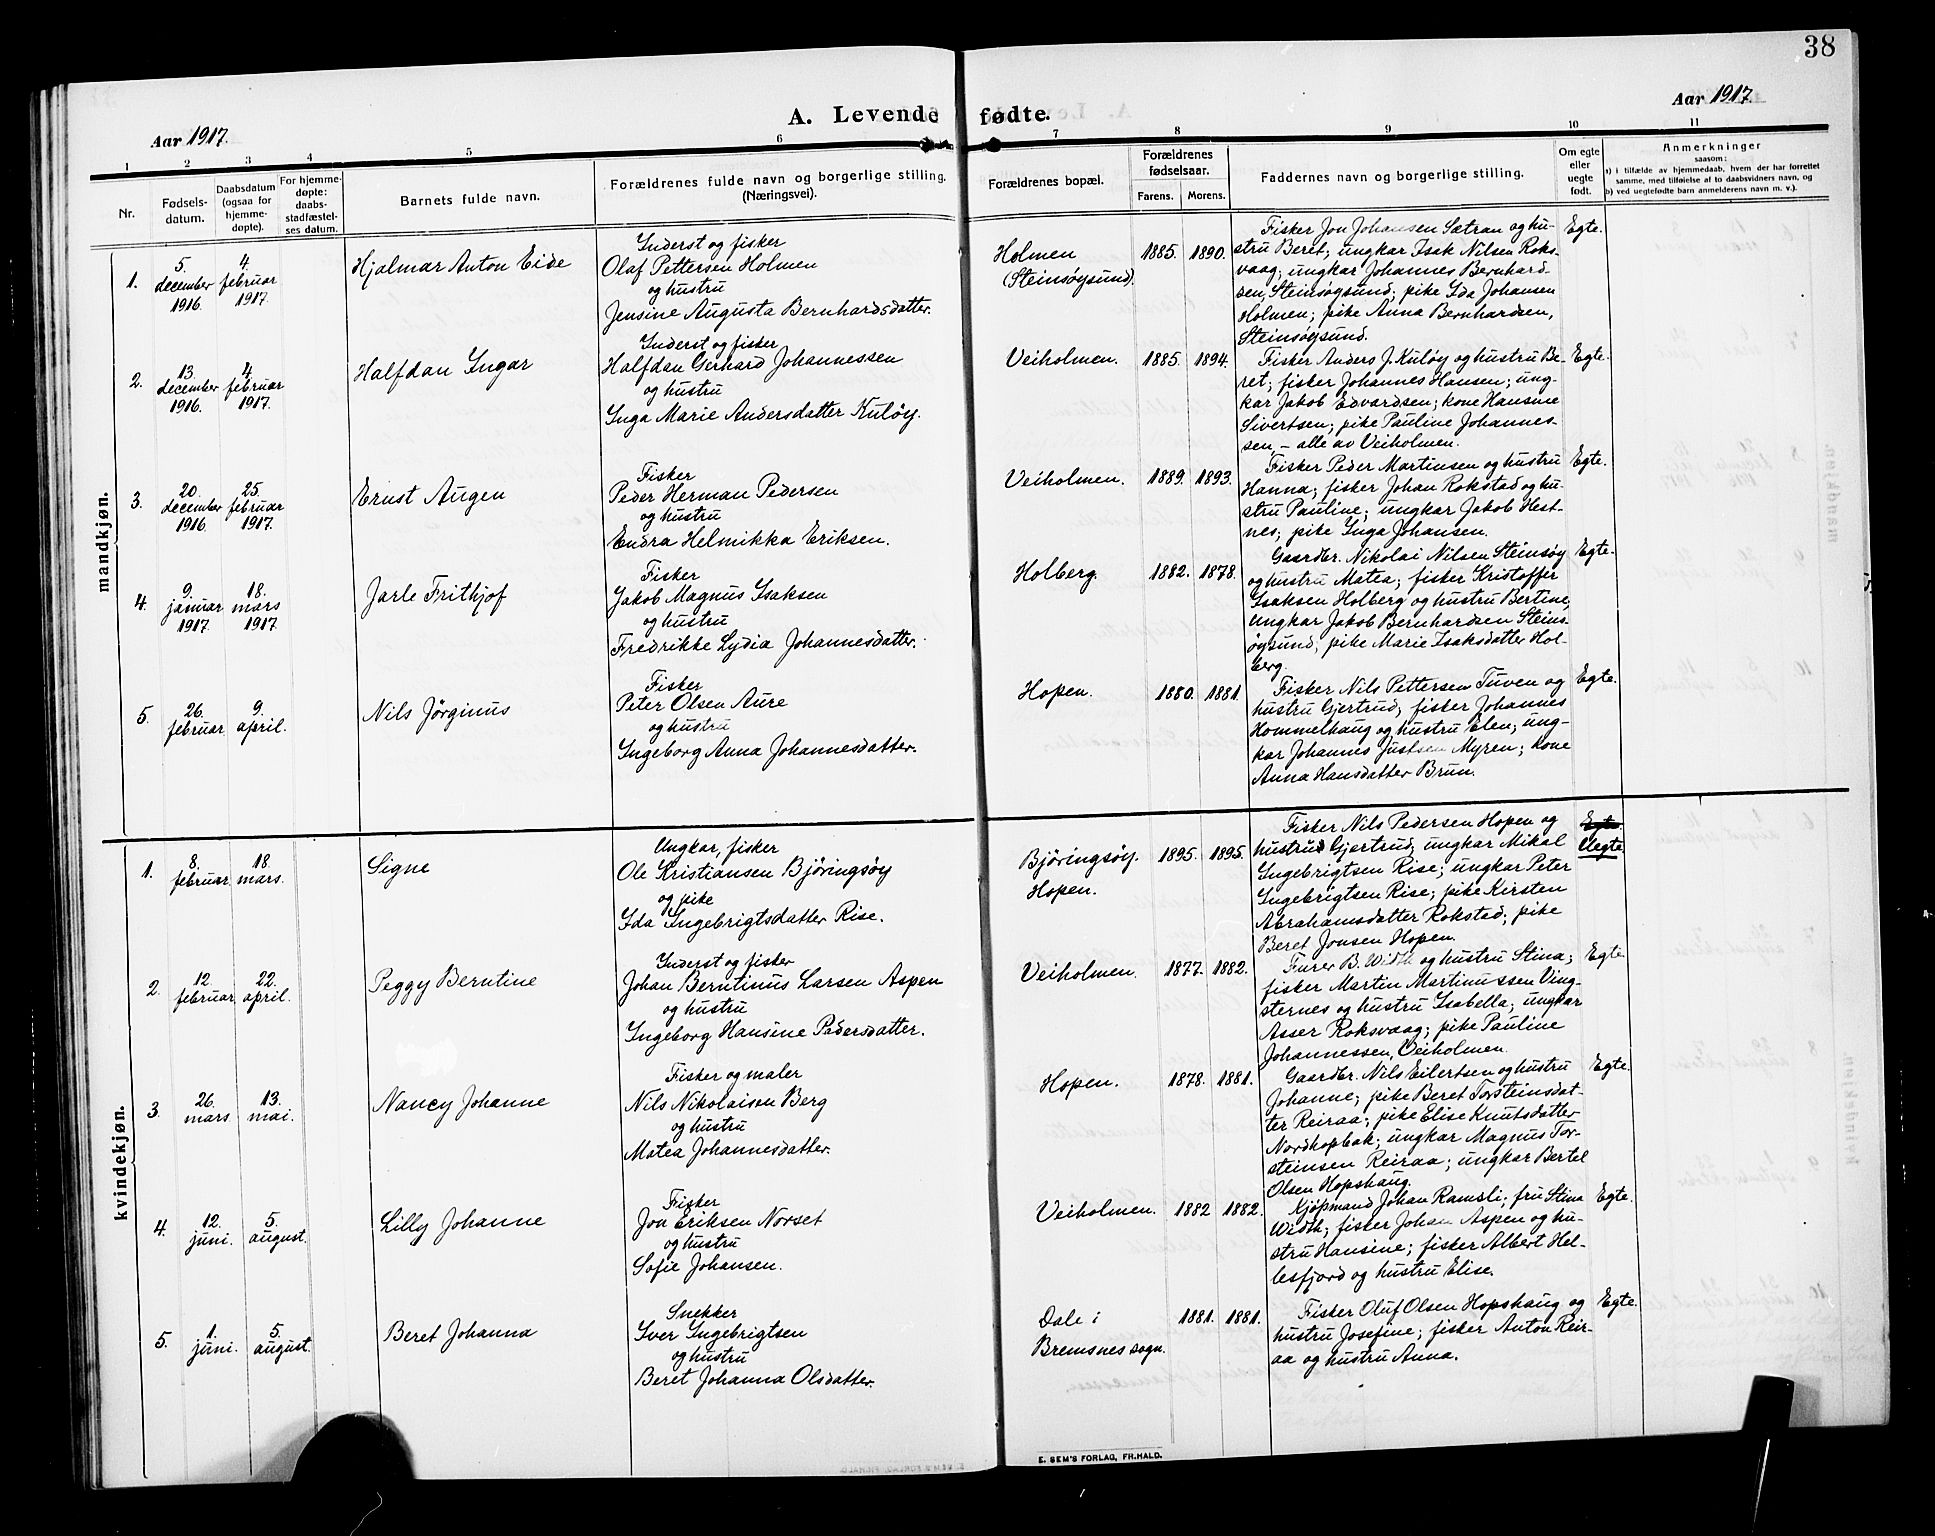 38
A. Levende fødte.
Aar 1917.
Aar 1917.
1 2 3 4 5 6 7 8 9 10 11
Nr.
Fødsels-
datum.
Daabsdatum
(ogsaa for
hjemme-
døpte).
For hjemme-
døpte:
daabs-
stadfæstel-
ses datum.
Barnets fulde navn.
Forældrenes fulde navn og borgerlige stilling.
(Næringsvei).
Forældrenes bopæl.
Forældrenes
fødselsaar.
Farens. Morens.
Faddernes navn og borgerlige stilling.
Om egte
eller
uegte
født.
Anmerkninger
saasom:
a) i tilfælde av hjemmedaab, hvem der har forrettet
samme, med tilføielse af to daabsvidners navn, og
b) ved uegtefødte barn anmelderens navn m. v.).
mandkjøn.
1.
5.
december
1916.
4.
februar
1917.
Hjalmar Anton Eide
Inderst og fisker
Olaf Pettersen Holmen
og hustru
Jensine Augusta Bernhardsdatter.
Holmen
(Steinsøysund).
1885. 1890.
Fisker Jon Johansen Sætran og hu-
stru Beret; ungkar Isak Nilsen Roks-
vaag; ungkar Johannes Bernhard-
sen, Steinsøysund; pike Ida Johansen
Holmen; pike Anna Bernhardsen,
Steinsøysund.
Egte.
2.
13.
december
1916.
4.
februar
1917.
Halfdan Ingar
Inderst og fisker
Halfdan Gerhard Johannessen
og hustru
Inga Marie Andersdatter Kuløy.
Veiholmen.
1885. 1894.
Fisker Anders J. Kuløy og hustru Be-
ret; fisker Johannes Hansen; ung-
kar Jakob Edvardsen; kone Hansine
Sivertsen; pike Pauline Johannes-
sen, – alle av Veiholmen.
Egte.
3.
20.
december
1916.
25.
februar
1917.
Ernst Augen
Fisker
Peder Herman Pedersen
og hustru
Endra Helmikka Eriksen.
Veiholmen.
1889. 1893.
Fisker Peder Martinsen og hustru
Hanna; fisker Johan Rokstad og hu-
stru Pauline; ungkar Jakob Hest-
nes; pike Inga Johansen.
Egte.
4.
9.
januar
1917
18.
mars
1917.
Jarle Frithjof
Fisker
Jakob Magnus Isaksen
og hustru
Fredrikke Lydia Johannesdatter.
Holberg.
1882. 1878.
Gaardbr. Nikolai Nilsen Steinsøy
og hustru Matea; fisker Kristoffer
Isaksen Holberg og hustru Bertine,
ungkar Jakob Bernhardsen Steins-
øysund; pike Marie Isaksdatter Hol-
berg.
Egte.
5.
26.
februar
9.
april.
Nils Jørginus
Fisker
Peter Olsen Aure
og hustru
Ingeborg Anna Johannesdatter.
Hopen.
1880. 1881.
Fisker Nils Pettersen Tuven og
hustru Gjertrud; fisker Johannes
Hommelhaug og hustru Elen; ung-
kar Johannes Justsen Myren; kone
Anna Hansdatter Brun.
Egte.
kvindekjøn.
1.
8.
februar
18.
mars.
Signe
Ungkar, fisker
Ole Kristiansen Bjøringsøy
og pike
Ida Ingebrigtsdatter Rise.
Bjøringsøy.
Hopen.
1895. 1895.
Fisker Nils Pedersen Hopen og
hustru Gjertrud; ungkar Mikal
Ingebrigtsen Rise; ungkar Peter
Ingebrigtsen Rise; pike Kirsten
Abrahamsdatter Rokstad; pike
Beret Jonsen Hopen.
Egte.
Uegte
2.
12.
februar
22.
april.
Peggy Berntine
Inderst og fisker
Johan Berntinus Larsen Aspen
og hustru
Ingeborg Hansine Pedersdatter.
Veiholmen.
1877. 1882.
Furer B. Width og hustru Stina;
fisker Martin Martinussen Ving-
sternes og hustru Isabella; ungkar
Asser Roksvaag; pike Pauline
Johannessen, Veiholmen.
Egte.
3.
26.
mars
13.
mai.
Nancy Johanne
Fisker og maler
Nils Nikolaisen Berg
og hustru
Matea Johannesdatter.
Hopen.
1878. 1881.
Gaardbr. Nils Eilertsen og hustru
Johanne; pike Beret Torsteinsdat-
ter Reiraa; pike Elise Knutsdatter
Nordhopbak; ungkar Magnus Tor-
steinsen Reiraa; ungkar Bertel
Olsen Hopshaug.
Egte.
4.
12.
juni.
5.
august.
Lilly Johanne
Fisker
Jon Eriksen Norset
og hustru
Sofie Johansen.
Veiholmen.
1882 1882.
Kjøpmand Johan Ramsli; fru Stina
Width; fisker Johan Aspen og hu-
stru Hansine; fisker Albert Hel-
lesfjord og hustru Elise.
Egte.
5.
1.
juni.
5.
august.
Beret Johanna
Snekker
Iver Ingebrigtsen
og hustru
Beret Johanna Olsdatter.
Dale i
Bremsnes sogn.
1881. 1881.
Fisker Oluf Olsen Hopshaug og
hustru Josefine; fisker Anton Reir-
aa og hustru Anna.
Egte.
E. SEM'S FORLAG, FR.HALD.